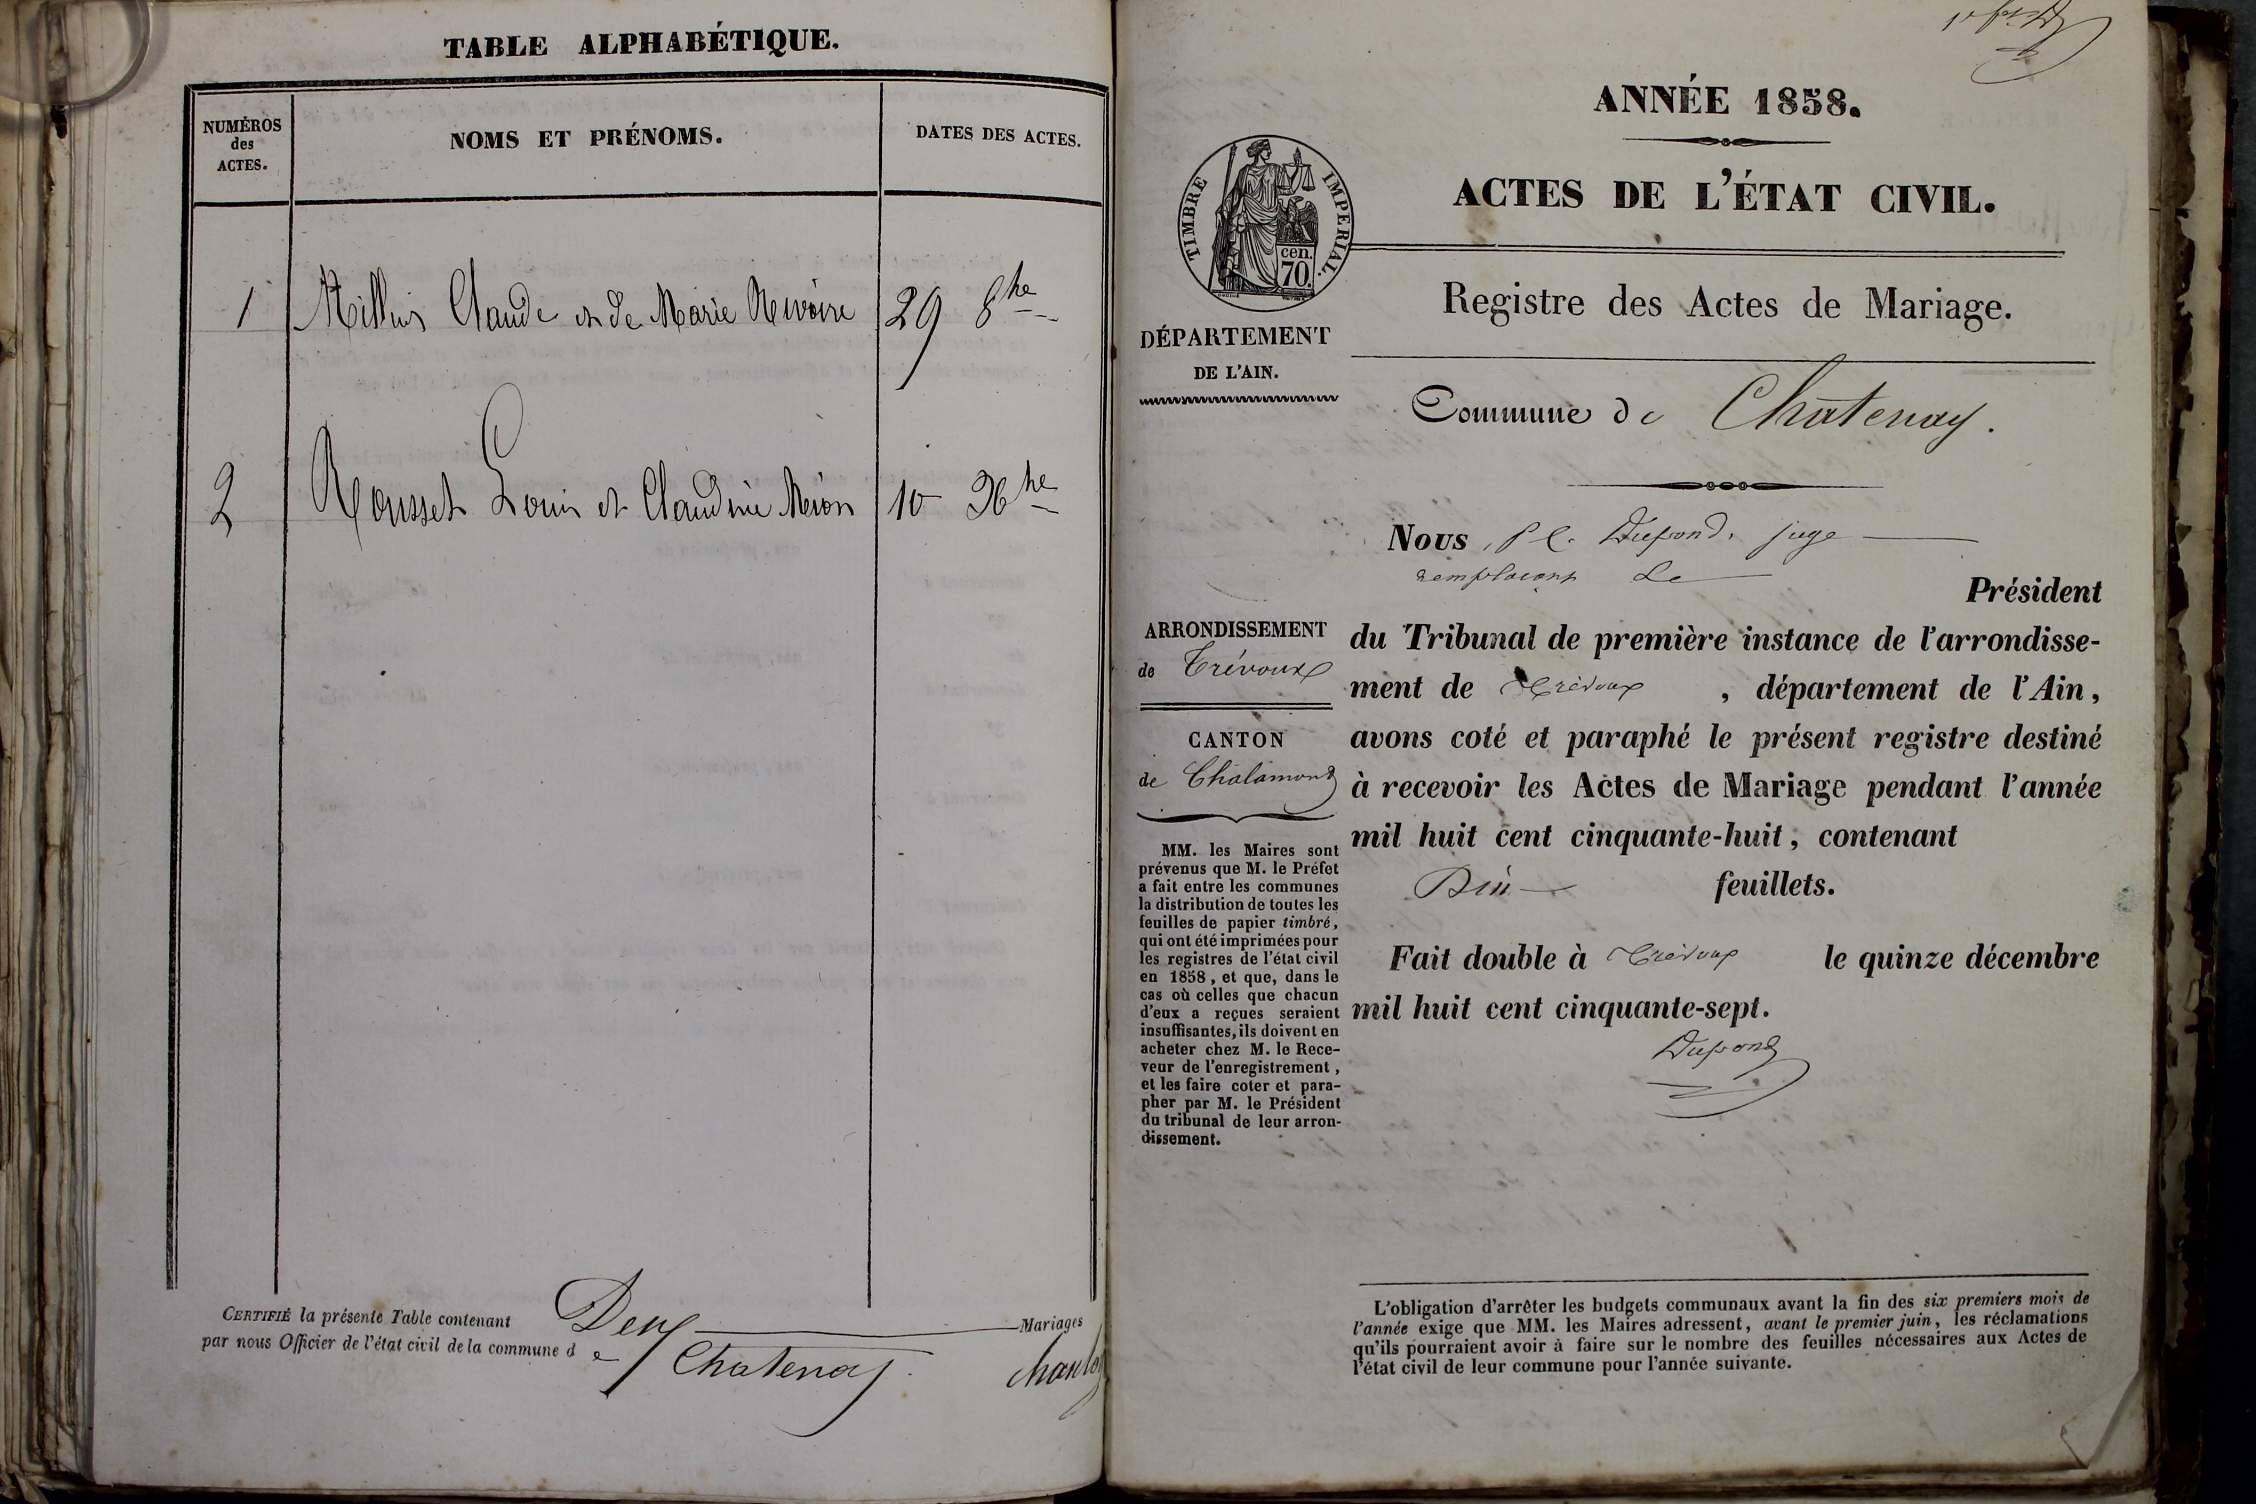 TABLE ALPHABÉTIQUE.
NUMÉROS
des
ACTES.
NOMS ET PRÉNOMS.
DATES DES ACTES.
1 Claude et de Marie 29 8bre
2 Rousset Louis et Claudine 10 9bre
CERTIFIÉ la présente Table contenant Deux Mariages
par nous Officier de l'état civil de la commune de Chatenay
ANNÉE 1858.
ACTES DE L'ÉTAT CIVIL.
TIMBRE IMPERIAL.
cen.
70.
Registre des Actes de Mariage.
DÉPARTEMENT
DE L'AIN.
Commune de Chatenay.
Nous, Dupond, juge
remplaçant le
Président
ARRONDISSEMENT
de Trévoux
CANTON
de Chalamond
MM. les Maires sont
prévenus que M. le Préfet
a fait entre les communes
la distribution de toutes les
feuilles de papier timbré,
qui ont été imprimées pour
les registres de l'état civil
en 1858, et que, dans le
cas où celles que chacun
d'eux a reçues seraient
insuffisantes, ils doivent en
acheter chez M. le Rece-
veur de l'enregistrement,
et les faire coter et para-
pher par M. le Président
du tribunal de leur arron-
dissement.
du Tribunal de première instance de l'arrondisse-
ment de Trévoux, département de l'Ain,
avons coté et paraphé le présent registre destiné
à recevoir les Actes de Mariage pendant l'année
mil huit cent cinquante-huit, contenant
feuillets.
Fait double à Trévoux le quinze décembre
mil huit cent cinquante-sept.
Dupond
L'obligation d'arrêter les budgets communaux avant la fin des six premiers mois de
l'année exige que MM. les Maires adressent, avant le premier juin, les réclamations
qu'ils pourraient avoir à faire sur le nombre des feuilles nécessaires aux Actes de
l'état civil de leur commune pour l'année suivante.